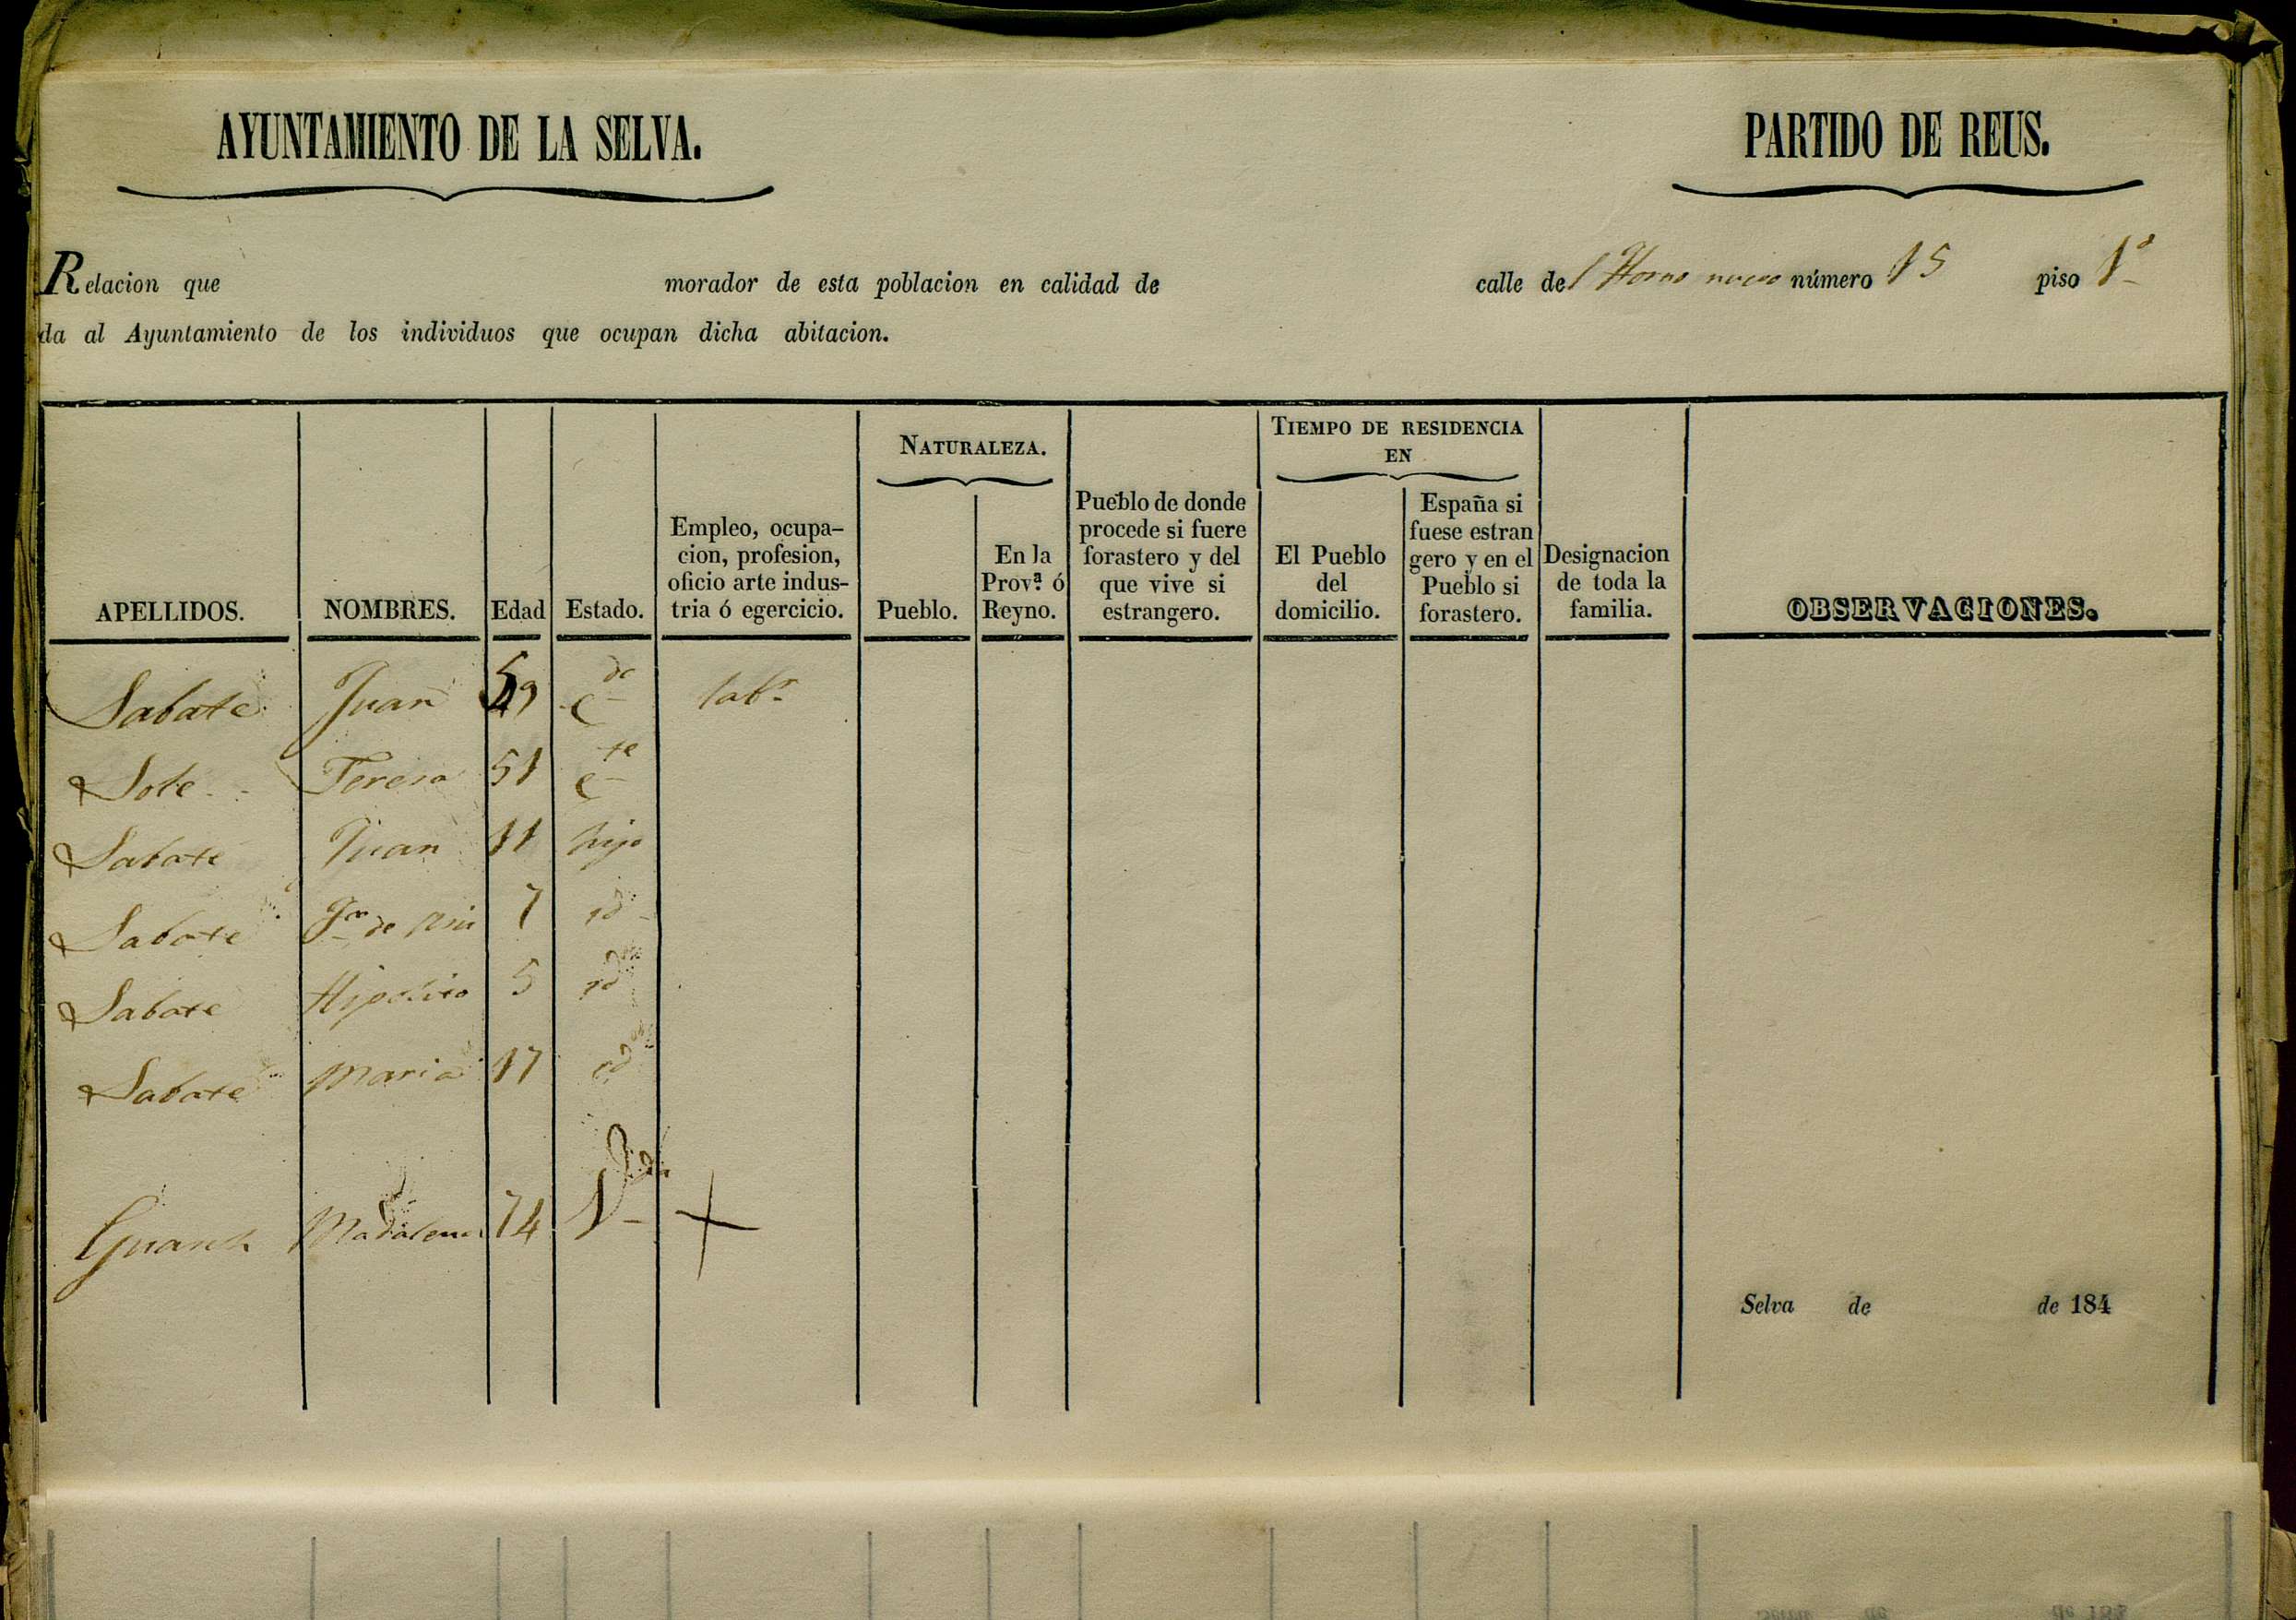 AYUNTAMIENTO DE LA SELVA.
PARTIDO DE REUS.
Relacion que morador de esta poblacion en calidad de calle del Horno nuevo número 15 piso 1º
da al Ayuntamiento de los individuos que ocupan dicha abitacion.
NATURALEZA.
TIEMPO DE RESIDENCIA
EN
APELLIDOS.
NOMBRES.
Edad
Estado.
Empleo, ocupa-
cion, profesion,
oficio arte indus-
tria ó egercicio.
Pueblo.
En la
Provª ó
Reyno.
Pueblo de donde
procede si fuere
forastero y del
que vive si
estrangero.
El Pueblo
del
domicilio.
España si
fuese estran
gero y en el
Pueblo si
forastero.
Designacion
de toda la
familia.
OBSERVACIONES.
Sabate Juan Cdo labr
Sole Teresa 51 Cte
Sabate Juan 11 hijo
Sabate 7 id
Sabate Hipolito 5 id
Sabate Maria 17 id
Guasch Madalena 74 Vda
Selva de de 184